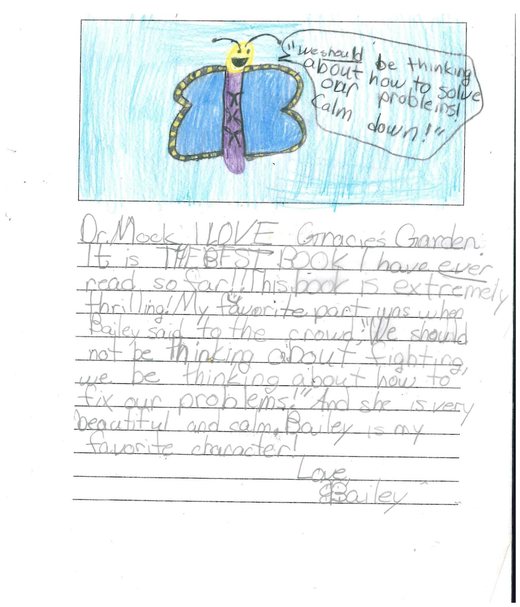 "We should be thinking
about how to solve
our problems!
Calm
down!"
Dr. Mock, I LOVE Gracie's Garden.
It is THE BEST BOOK I have ever
read so far!! This book is extremely
thrilling! My favorite part was when
Bailey said to the crowd, "We should
not be thinking about fighting,
we be thinking about how to
fix our problems!" And she is very
beautiful and calm. Bailey is my
favorite character!
Love,
Bailey